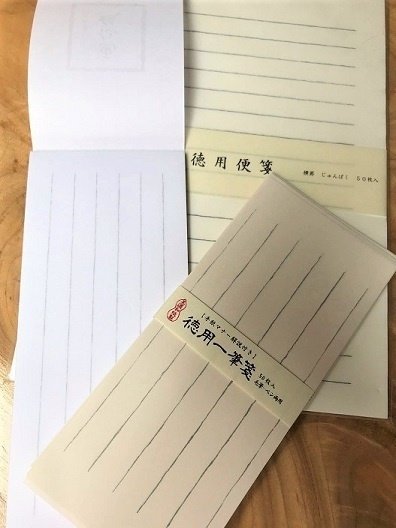 徳用便箋
横罫 じゅんぱく 50枚入
【手紙マナー解説付き】
徳用一筆箋
50枚入
毛筆・ペン両用